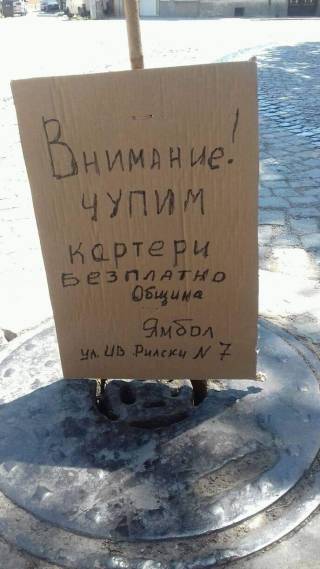 Внимание!
чупим
картери
безплатно
Община
Ямбол
ул. ив Рилски N 7